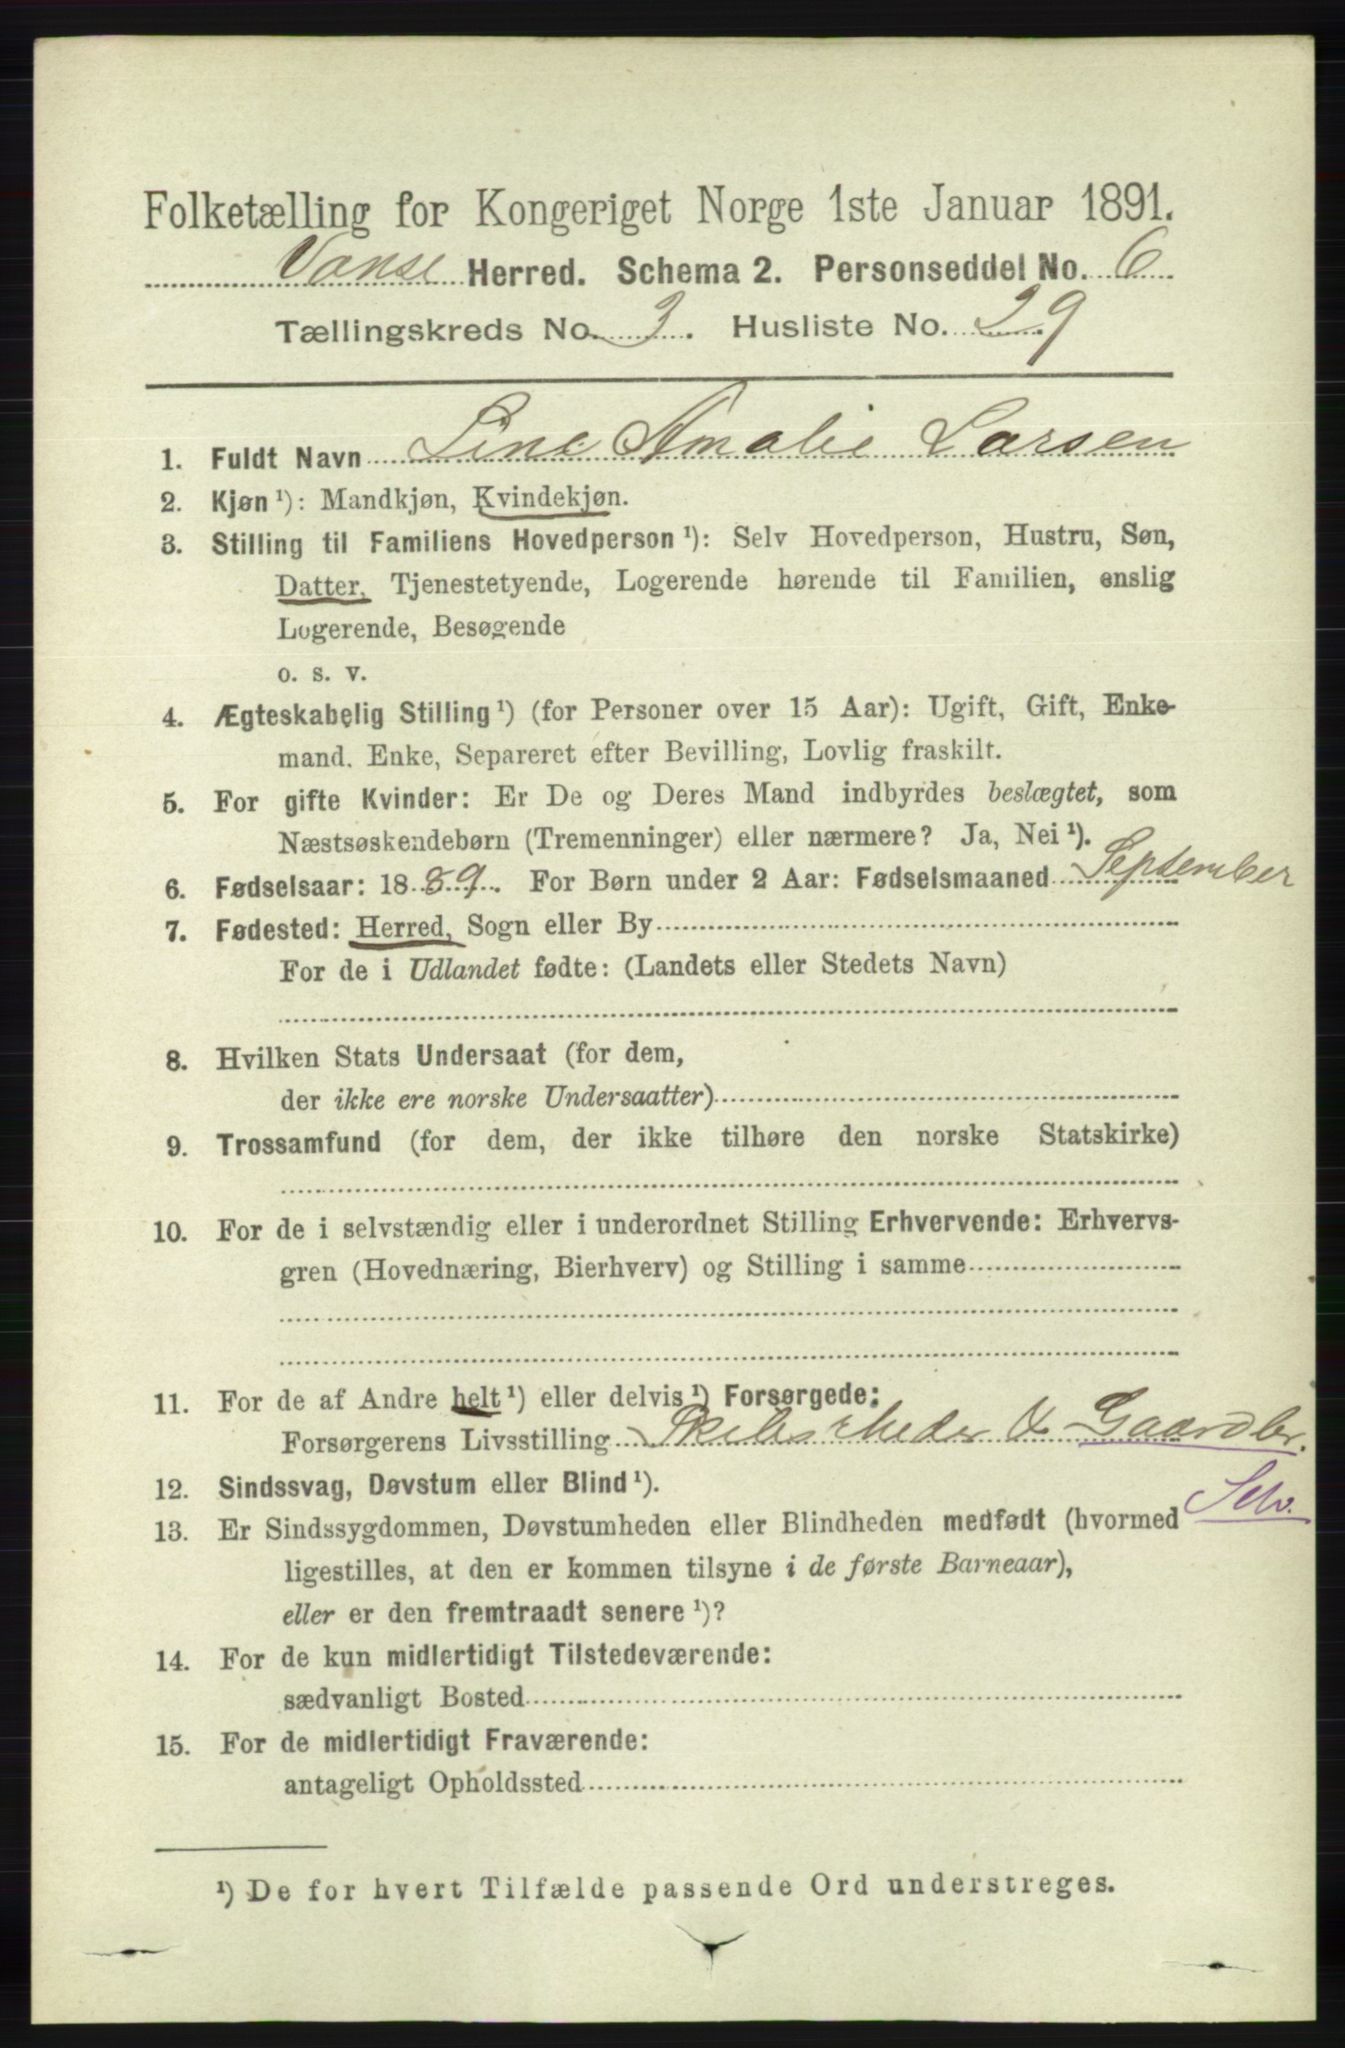 Folketælling for Kongeriget Norge 1ste Januar 1891.
Vanse Herred. Schema 2. Personseddel No. 6
Tællingskreds No. 3. Husliste No. 29
1. Fuldt Navn Line Amalie Larsen
2. Kjøn ¹): Mandkjøn, Kvindekjøn.
3. Stilling til Familiens Hovedperson ¹): Selv Hovedperson, Hustru, Søn,
Datter, Tjenestetyende, Logerende hørende til Familien, enslig
Logerende, Besøgende
o. s. v.
4. Ægteskabelig Stilling ¹) (for Personer over 15 Aar): Ugift, Gift, Enke-
mand, Enke, Separeret efter Bevilling, Lovlig fraskilt.
5. For gifte Kvinder: Er De og Deres Mand indbyrdes beslægtet, som
Næstsøskendebørn (Tremenninger) eller nærmere? Ja, Nei ¹).
6. Fødselsaar: 1889. For Børn under 2 Aar: Fødselsmaaned September
7. Fødested: Herred, Sogn eller By
For de i Udlandet fødte: (Landets eller Stedets Navn)
8. Hvilken Stats Undersaat (for dem,
der ikke ere norske Undersaatter)
9. Trossamfund (for dem, der ikke tilhøre den norske Statskirke)
10. For de i selvstændig eller i underordnet Stilling Erhvervende: Erhvervs-
gren (Hovednæring, Bierhverv) og Stilling i samme
11. For de af Andre helt ¹) eller delvis ¹) Forsørgede:
Forsørgerens Livsstilling Skibsrheder & Gaardbr.
Selv.
12. Sindssvag, Døvstum eller Blind ¹).
13. Er Sindssygdommen, Døvstumheden eller Blindheden medfødt (hvormed
ligestilles, at den er kommen tilsyne i de første Barneaar),
eller er den fremtraadt senere ¹)?
14. For de kun midlertidigt Tilstedeværende:
sædvanligt Bosted
15. For de midlertidigt Fraværende:
antageligt Opholdssted
¹) De for hvert Tilfælde passende Ord understreges.